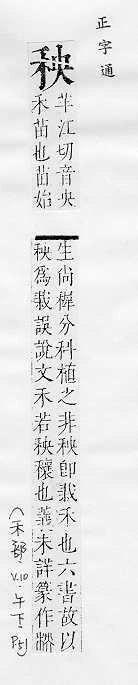 正字通
秧
芉江切音央
禾苗也苗始
生尚樨分科植之非秧即栽禾也六書故以
秧為栽誤說文禾若秧穰也義未詳篆作
(禾部, V.10. 午下. P5)